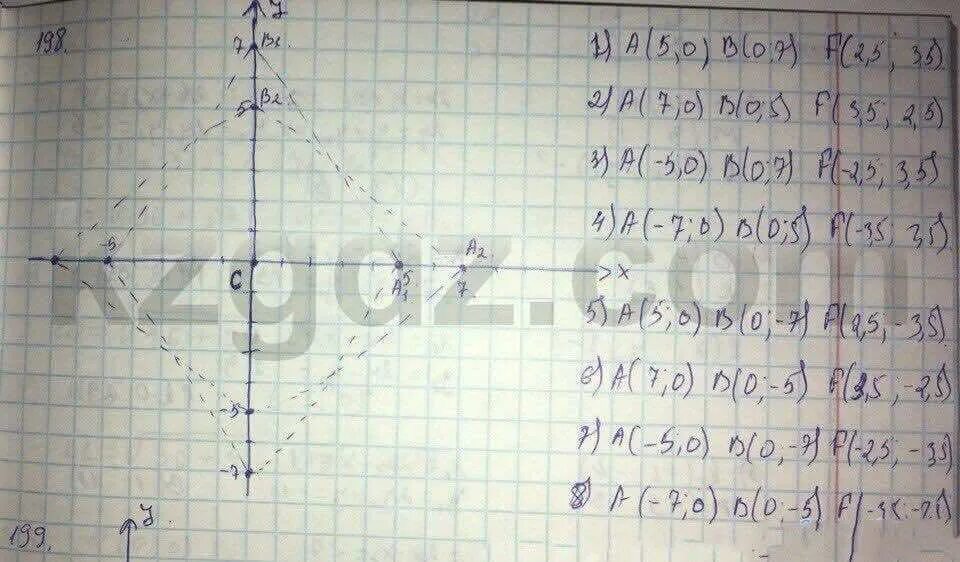 198.
y
7 B1.
5 B2
-5
C
5
A1
A2
7
x
-5
-7
1) A(5;0) B(0;7) F(2,5; 3,5)
2) A(7;0) B(0;5) F(3,5; 2,5)
3) A(-5;0) B(0;7) F(-2,5; 3,5)
4) A(-7;0) B(0;5) F(-3,5; 3,5)
5) A(5;0) B(0;-7) F(2,5; -3,5)
6) A(7;0) B(0;-5) F(3,5; -2,5)
7) A(-5;0) B(0,-7) F(-2,5; -3,5)
8) A(-7;0) B(0;-5) F(-3,5; -2,5)
199.
y.
kzgdz.com